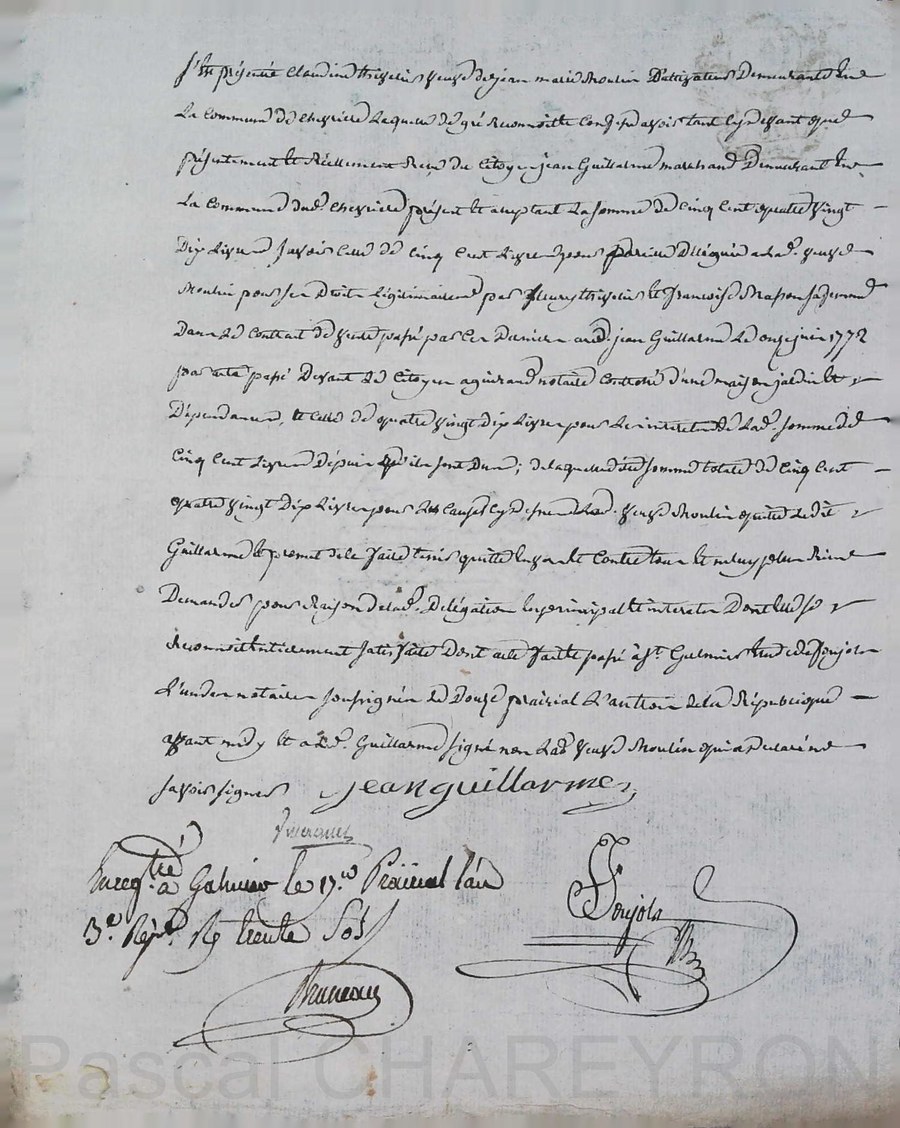 S'est présentée Claudine veuve de jean marie Moulin Demeurante en
La Commune de Chevrière Laquelle de gré Reconnoitre Conf. avoir tant cy devant que
présentement et Réellement Reçu du Citoyen jean Guillarme marchand Demeurant En
La Commune dud. Chevriere présent et aceptant La somme de Cinq Cent quatre vingt
Dix Livres Savoir Celle de Cinq Cent Livres pour pareille Déléguée a Lad. veuve
Moulin pour ses Droits Légitimaires par fleury et francoise sa femme
Dans Le Contrat de vente passé par Ces Derniers aud. jean Guillarme Le onze juin 1772
par acte passé Devant Le Citoyen notaire Controlé d'une maison jardin et
Dépendances, et Celle de quatre vingt Dix Livres pour Les interets de Lad. somme de
Cinq Cent Livres Depuis qu'ils sont Dus; de laquelle dite somme totale de Cinq Cent
quatre vingt Dix Livres pour Les Causes Cy dessus Lad. veuve Moulin quitte Ledit
Guillarme et promet de le faire tenir quitte Envers et Contre tous et n'en plus Rien
Demander pour Raison de Lad. Delégation En principal et interets Dont Elle se
Reconnoit Entierement satisfaite Dont acte fait et passé à St. Galmier Etude de Soujols
L'un des notaires soussignés Le Douze prairial L'an trois de la République
avant midy Et a Led. Guillarme signé non Lad. veuve Moulin qui a declaré ne
savoir signer jean guillarme
Enregtré. à Galmier le 17.e Prairial l'an
3.e Rép. R trente sols
Soujols
Bruneau
Pascal CHAREYRON